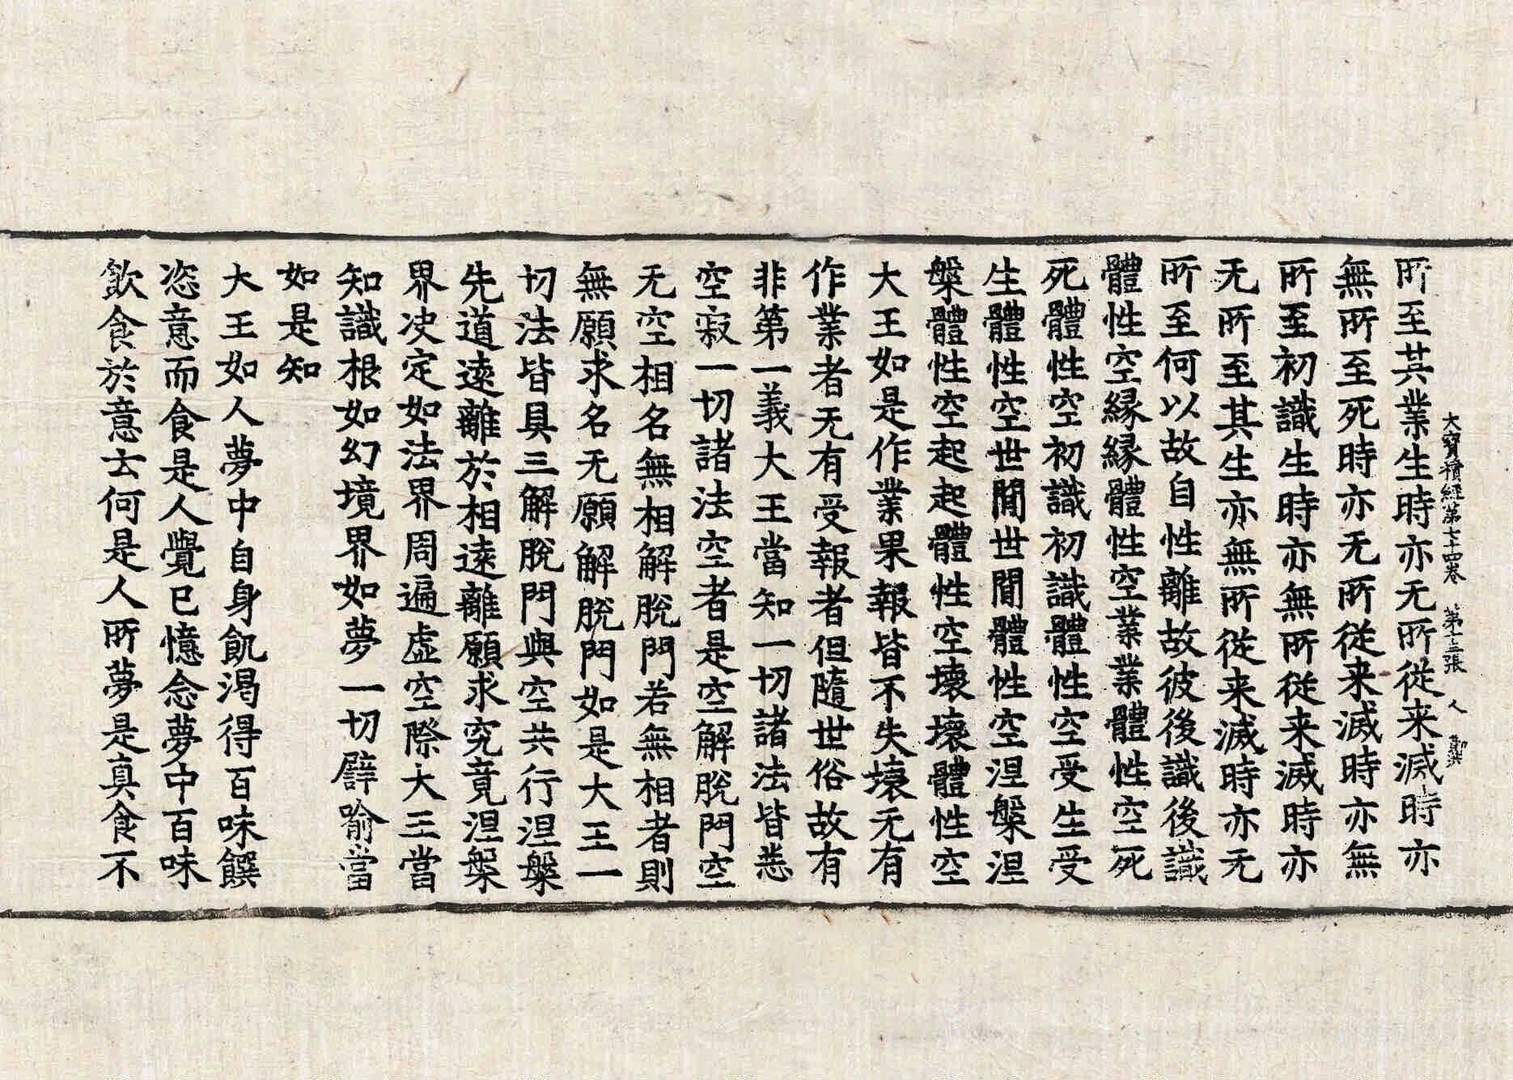 大寶積經第七十四卷 第十三張 人
所至其業生時亦无所從来滅時亦
無所至死時亦无所從来滅時亦無
所至初識生時亦無所從来滅時亦
无所至其生亦無所從来滅時亦无
所至何以故自性離故彼後識後識
體性空緣緣體性空業業體性空死
死體性空初識初識體性空受生受
生體性空世間世間體性空涅槃涅
槃體性空起起體性空壞壞體性空
大王如是作業果報皆不失壞无有
作業者无有受報者但隨世俗故有
非第一義大王當知一切諸法皆悉
空寂一切諸法空者是空解脫門空
无空相名無相解脫門若無相者則
無願求名无願解脫門如是大王一
切法皆具三解脫門與空共行涅槃
先道遠離於相遠離願求究竟涅槃
界决定如法界周遍虛空際大王當
知識根如幻境界如夢一切譬喻當
如是知
大王如人夢中自身飢渴得百味饌
恣意而食是人覺已憶念夢中百味
飲食於意云何是人所夢是真食不